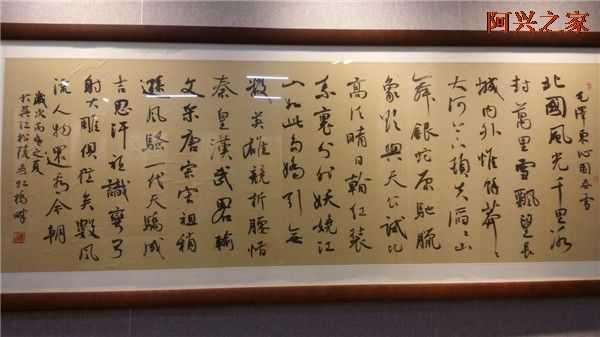 阿兴之家
毛澤東沁園春雪
北國風光千里冰
封萬里雪飄望長
城内外惟餘莽〻
大河上下頓失滔〻山
舞銀蛇原馳臘
象欲與天公試比
高須晴日觀紅裝
素裹分外妖嬈江
山如此多嬌引無
數英雄競折腰惜
秦皇漢武略輸
文采唐宗宋祖稍
遜風騷一代天驕成
吉思汗祇識彎弓
射大雕俱往矣數風
流人物還看今朝
歲次丙申之夏
於吳江松陵